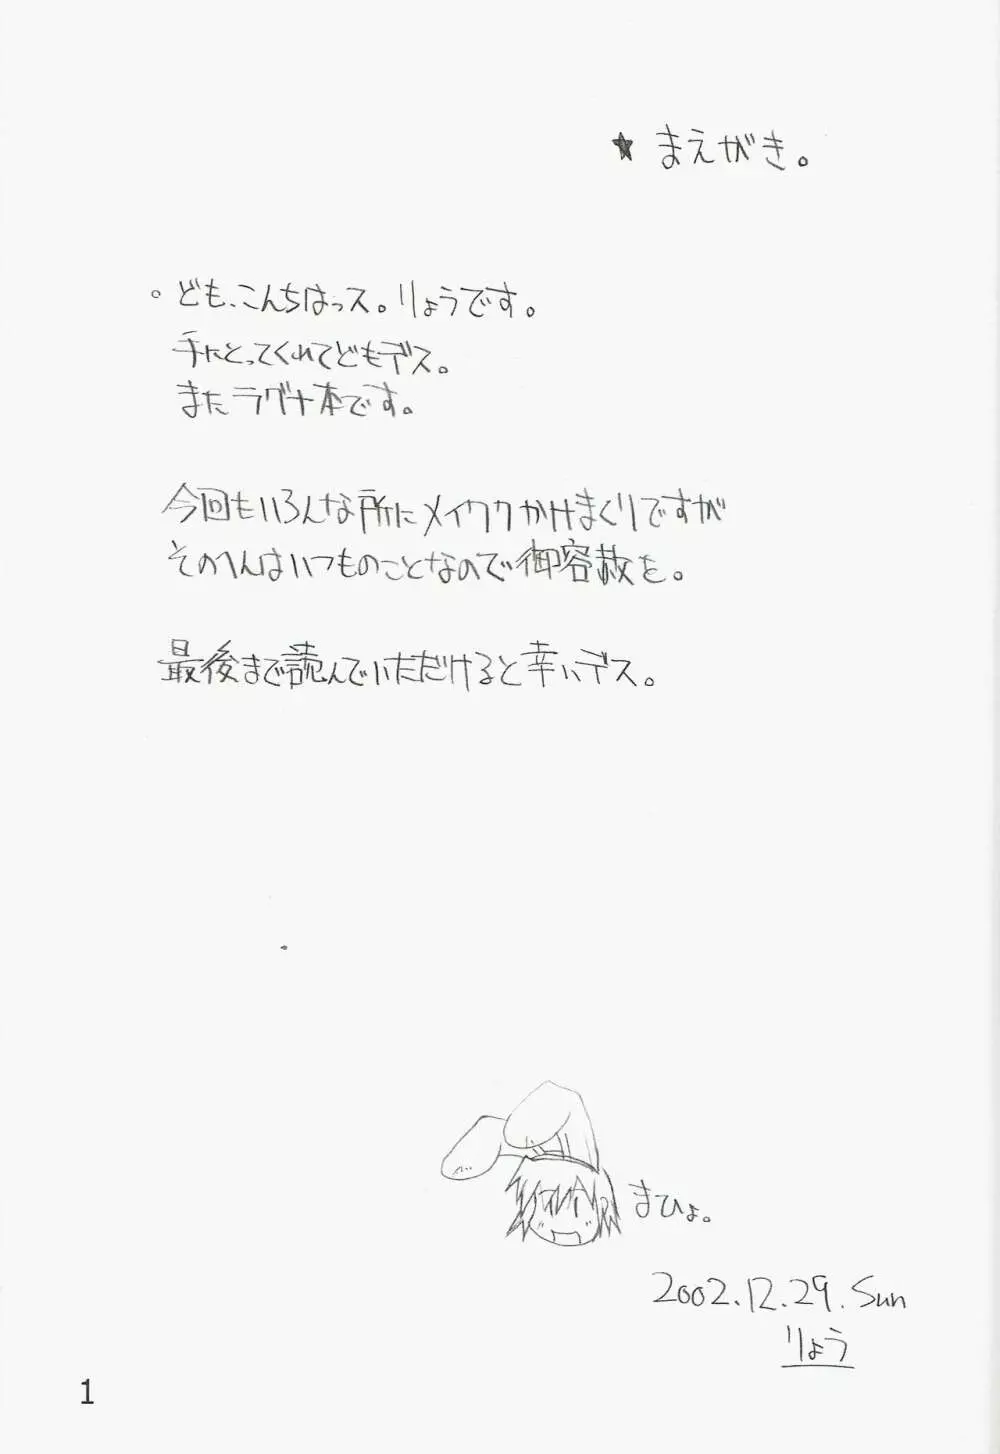 ★ まえがき。
。ども、こんちはっス。りょうです。
手にとってくれてどもデス。
またラグナ本です。
今回もいろんな所にメイワクかけまくりですが
そのへんはいつものことなので御容赦を。
最後まで読んでいただけると幸いデス。
まひょ。
2002.12.29.Sun
りょう
1